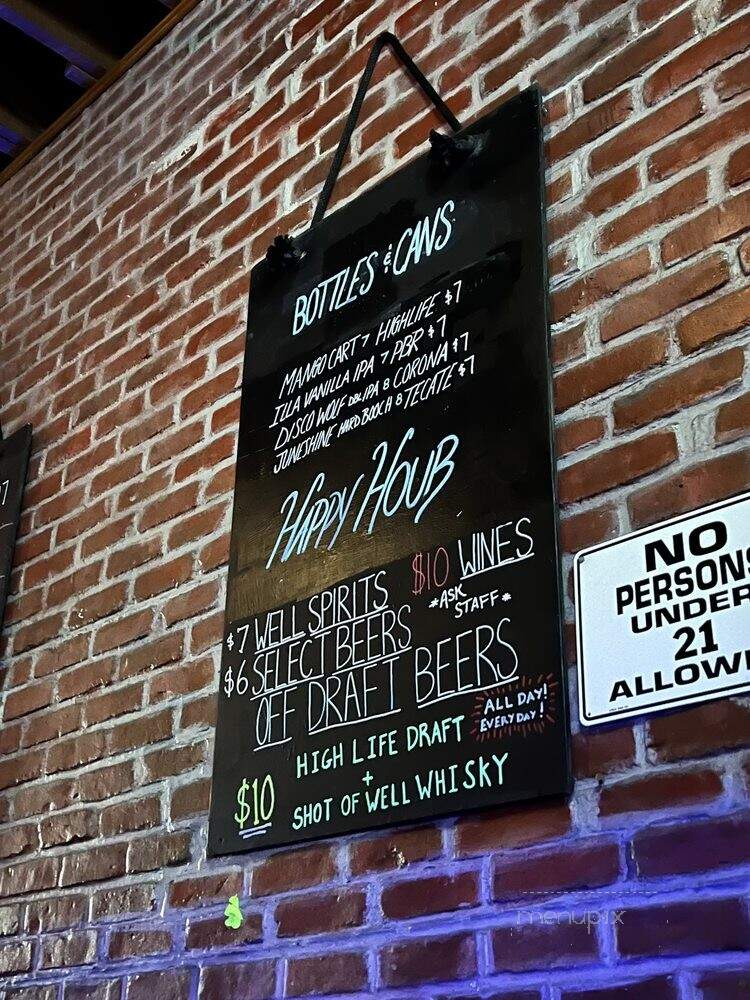 BOTTLES & CANS
MANGO CART 7 HIGHLIFE $7
ILLA VANILLA IPA 7 PBR $7
DISCO WOLF DBL IPA 8 CORONA $7
JUNESHINE HARD BOOCH 8 TECATE $7
HAPPY HOUR
$10 WINES
*ASK STAFF*
$7 WELL SPIRITS
$6 SELECT BEERS
OFF DRAFT BEERS
ALL DAY!
EVERYDAY!
$10 HIGH LIFE DRAFT
+
SHOT OF WELL WHISKY
NO
PERSONS
UNDER
21
ALLOW
menupix